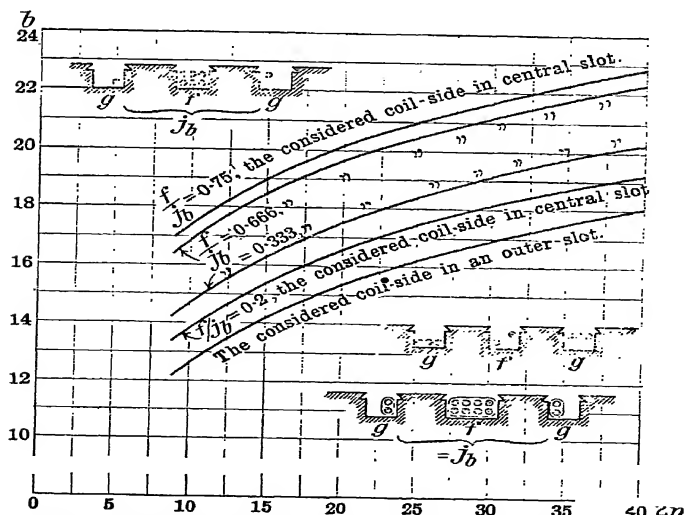 b
24
22
20
18
16
14
12
10
g f g
j_b
f/j_b = 0·75, the considered coil-side in central slot.
f/j_b = 0·666, „ „ „ „ „ „
„ = 0·333, „ „ „ „ „ „
f/j_b = 0·2, the considered coil-side in central slot
The considered coil-side in an outer slot.
g f g
g f g
= j_b
0 5 10 15 20 25 30 35 40